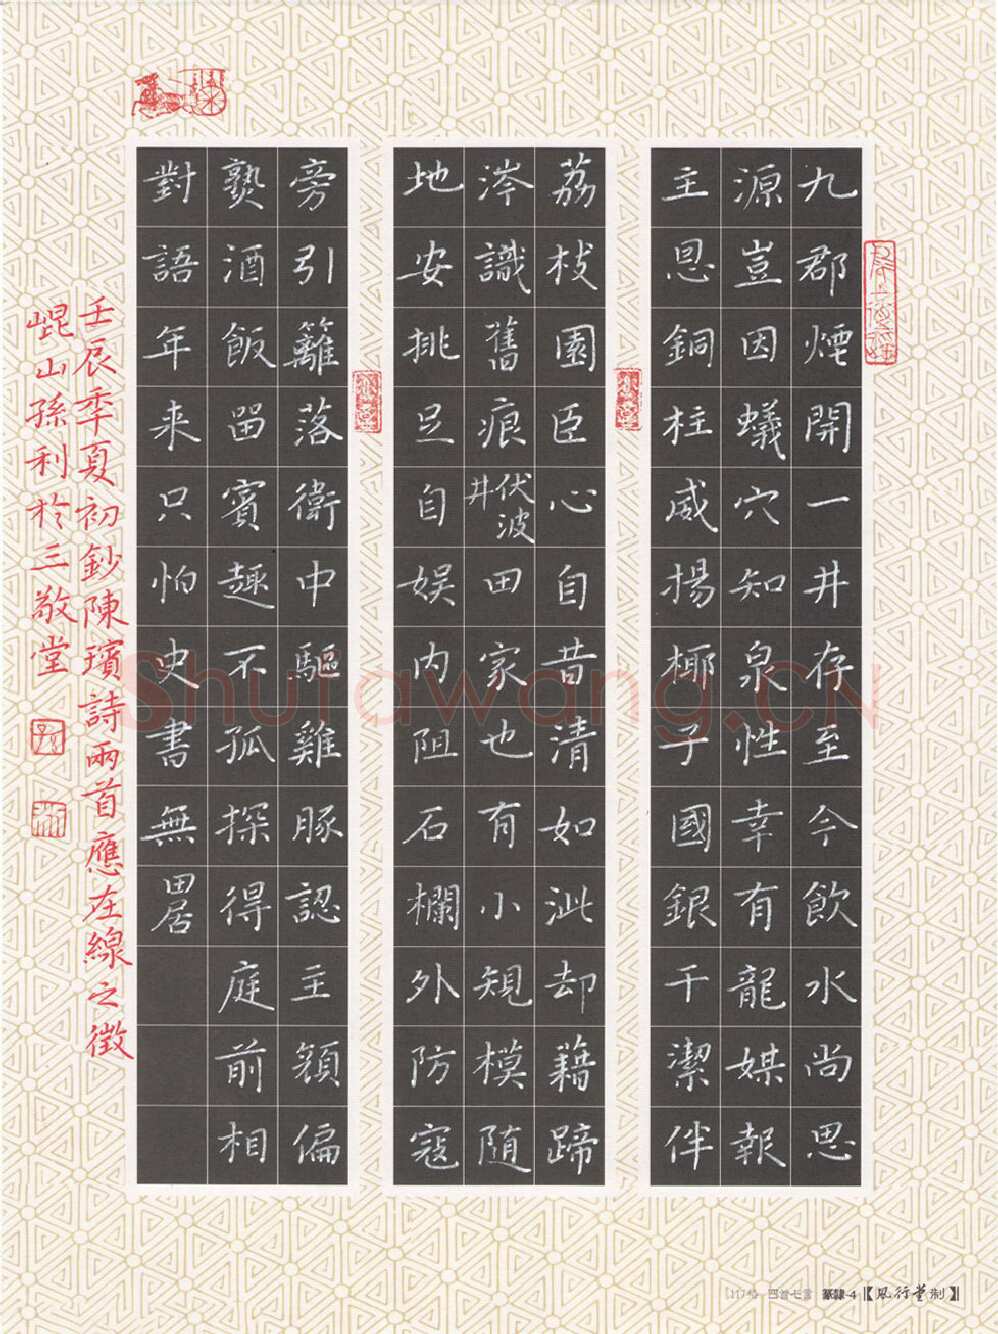 九郡煙開一井存至今飲水尚思
源豈因蟻穴知泉性幸有龍媒報
主恩銅柱威揚椰子國銀干潔伴
荔枝園臣心自昔清如泚却藉蹄
涔識舊痕伏波井田家也有小規模随
地安排足自娱内阻石欄外防寇
旁引籬落衛中驅雞豚認主頻偏
熟酒飯留賓趣不孤探得庭前相
對語年来只怕史書無畱
壬辰季夏初鈔陳璸詩兩首應在線之徵
崐山孫利於三敬堂
Shufawang.CN
117格 四首七言 篆隸-4【風行堂制】